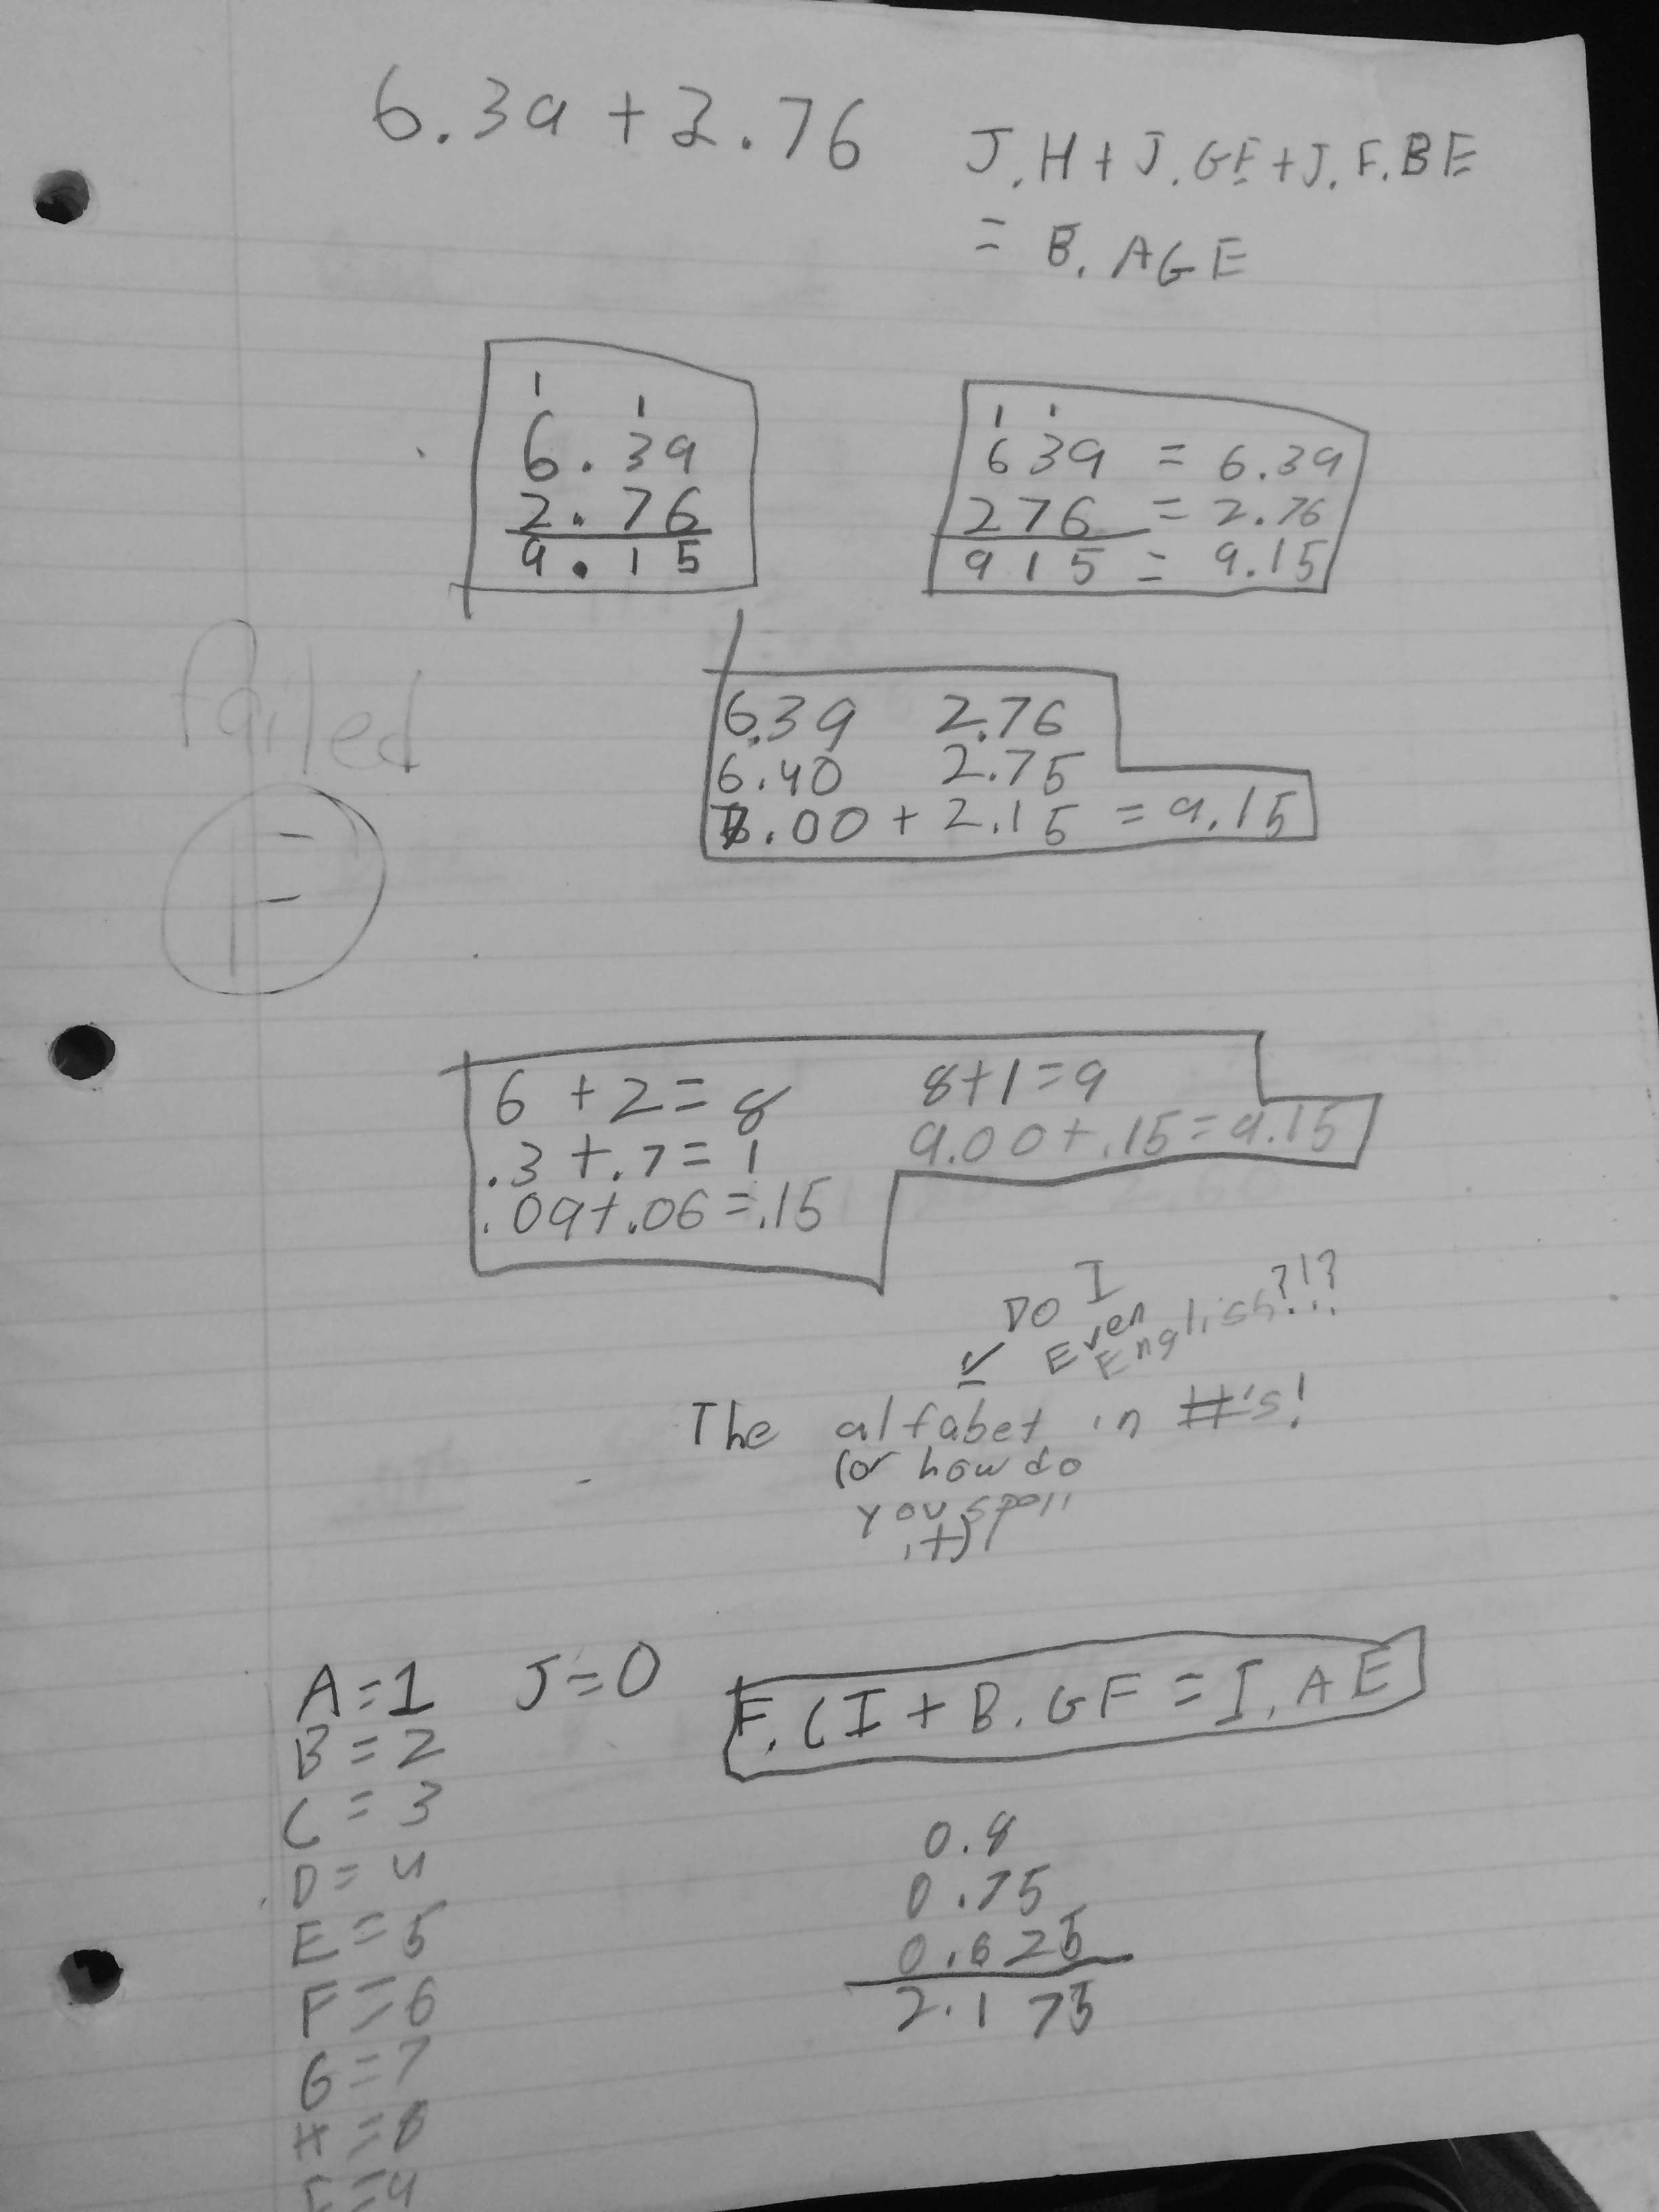 6.39 + 2.76
J.H + J.GE + J.F.BE
= B.AGE
1 1
6.39
2.76
9.15
1 1
639 = 6.39
276 = 2.76
915 = 9.15
failed
F
6.39 2.76
6.40 2.75
7.00 + 2.15 = 9.15
6 + 2 = 8
.3 + .7 = 1
.09 + .06 = .15
8 + 1 = 9
9.00 + .15 = 9.15
DO I
Even
English?!?
The alfabet in #'s!
(or how do
you spell
it)
A = 1 J = 0
B = 2
C = 3
D = 4
E = 5
F = 6
G = 7
H = 8
I = 9
F.CI + B.GF = I.AE
0.8
0.75
0.625
2.175